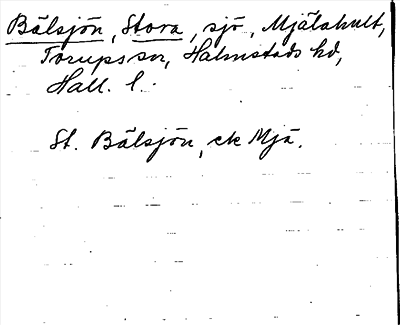 Bälsjön, Stora, sjö, Mjälahult,
Torups sn, Halmstads hd,
Hall. l.
St. Bälsjön, ek Mjä.